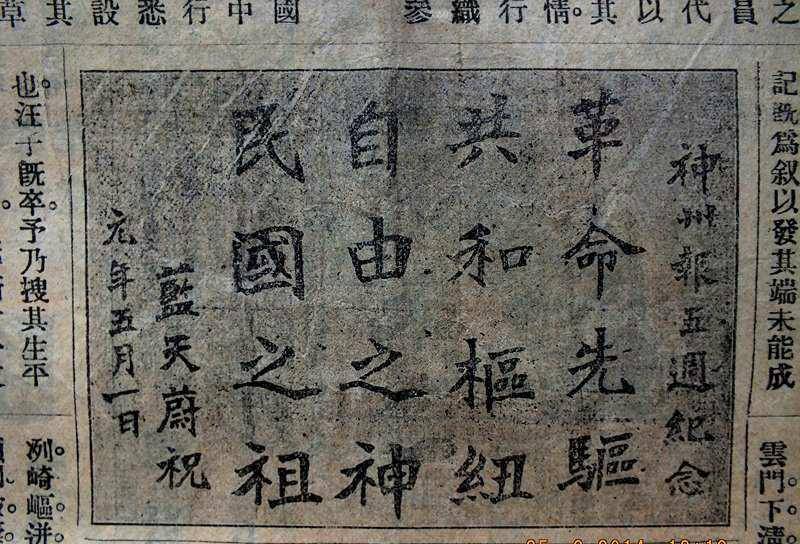 記既爲叙以發其端未能成
雲門下濤。
之員代以其情。行織參
國中行悉設其章
神州報五週紀念
革命先驅
共和樞紐
自由之神
民國之祖
藍天蔚祝
元年五月一日
也。汪子既卒。予乃搜其生平
洌。崎嶇洴。